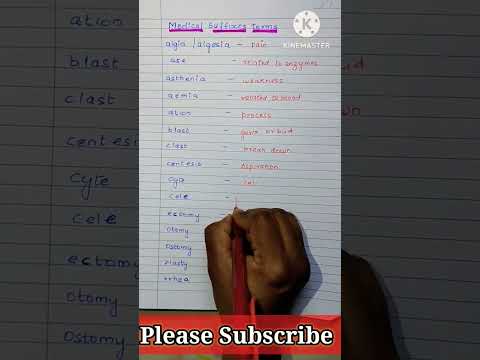 Medical Suffixes Terms
KINEMASTER
algia / algesia - pain
ase - related to enzymes
asthenia - weakness
aemia - related to blood
ation - process
blast - germ or bud
clast - break down
centesis - aspiration
cyte - cel
cele -
ectomy
otomy
ostomy
plasty
rrhea
Please Subscribe
ation
blast
clast
centesis
cyte
cele
ectomy
otomy
ostomy